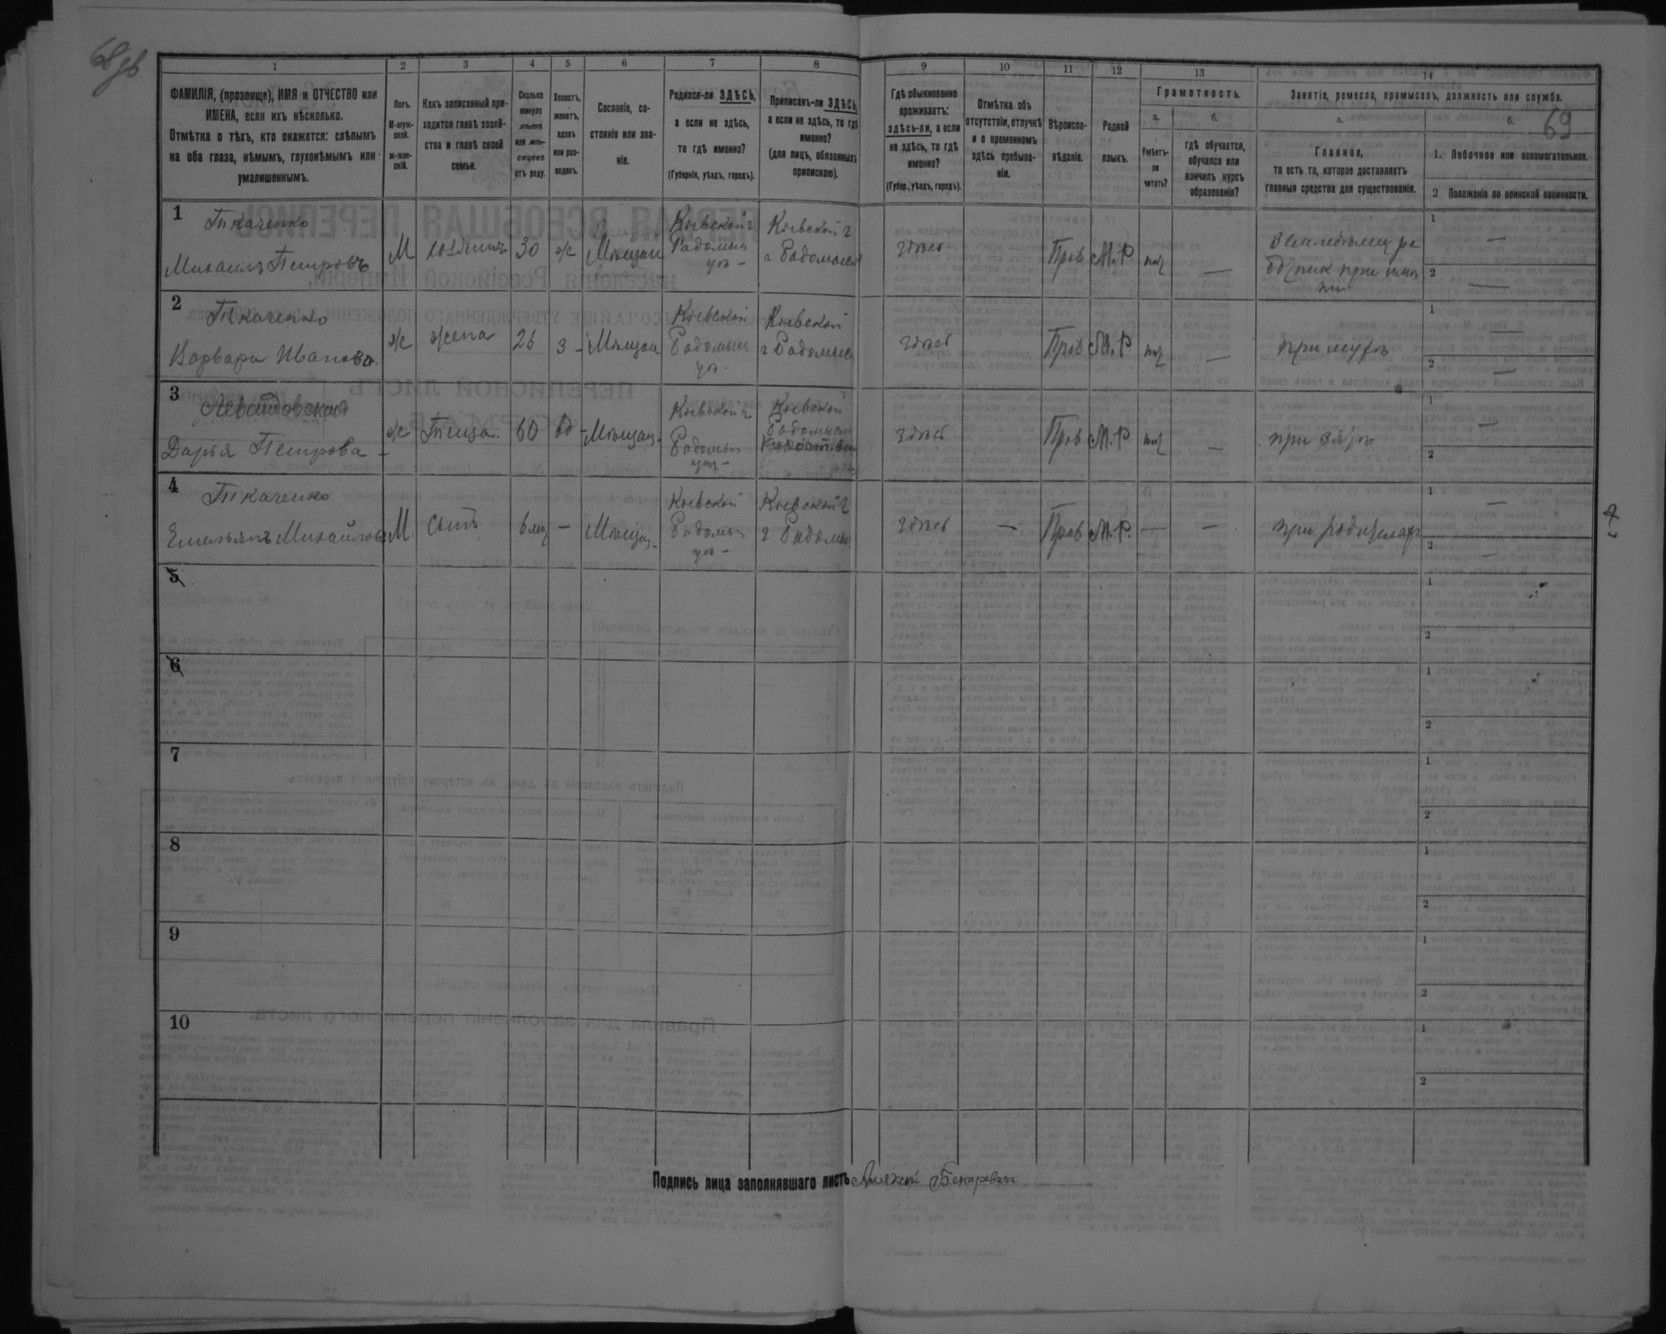 68об
69
1 2 3 4 5 6 7 8 9 10 11 12 13 14
ФАМИЛІЯ, (прозвище), ИМЯ и ОТЧЕСТВО или
ИМЕНА, если ихъ нѣсколько.
Отмѣтка о тѣхъ, кто окажется: слѣпымъ
на оба глаза, нѣмымъ, глухонѣмымъ или
умалишеннымъ.
Полъ.
М-муж-
ской.
ж-жен-
скій.
Какъ записанный при-
ходится главѣ хозяй-
ства и главѣ своей
семьи.
Сколько
минуло
лѣтъ
или мѣ-
сяцевъ
отъ роду.
Холостъ,
женатъ,
вдовъ
или раз-
веденъ.
Сословіе, со-
стояніе или зва-
ніе.
Родился-ли ЗДѢСЬ,
а если не здѣсь,
то гдѣ именно?
(Губернія, уѣздъ, городъ).
Приписанъ-ли ЗДѢСЬ,
а если не здѣсь, то гдѣ
именно?
(для лицъ, обязанныхъ
припискою).
Гдѣ обыкновенно
проживаетъ:
здѣсь-ли, а если
не здѣсь, то гдѣ
именно?
(Губер., уѣздъ, городъ).
Отмѣтка объ
отсутствіи, отлучкѣ
и о временномъ
здѣсь пребыва-
ніи.
Вѣроиспо-
вѣданіе.
Родной
языкъ.
Грамотность.
а.
Умѣетъ-
ли
читать?
б.
гдѣ обучается,
обучался или
кончилъ курсъ
образованія?
Занятіе, ремесло, промыселъ, должность или служба.
а.
Главное,
то есть то, которое доставляетъ
главныя средства для существованія.
б.
1. Побочное или вспомогательное.
2 Положеніе по воинской повинности.
1 Ткаченко
Михаилъ Петровъ М хозяинъ 30 ж Мѣщан
Кіевской г
Радомыс
уѣз-
Кіевской г
г Радомысл
здѣсь Прав М.Р нѣт —
1 —
2 —
2 Ткаченко
Варвара Иванова ж жена 26 з- Мѣщан
Кіевской
Радомыс
уѣз-
Кіевской
г Радомысл
здѣсь Прав М.Р нѣт — при мужѣ
1 —
2 —
3
Дарья Петрова - ж Теща. 60 вд - Мѣщан-
Кіевской г
Радомыс
уѣз-
Кіевской
Радомысл
здѣсь Прав М.Р нѣт — при зятѣ
1 —
2
4 Ткаченко
Емельянъ Михайловъ М Сынъ 6 мѣс — Мѣщан-
Кіевской
Радомыс
уѣз-
Кіевской г
г Радомыс
здѣсь — Прав М.Р. — — при родителях
1 —
2 —
5
1
2
6
1
2
7
1
2
8
1
2
9
1
2
10
1
2
Подпись лица заполнявшаго листъ